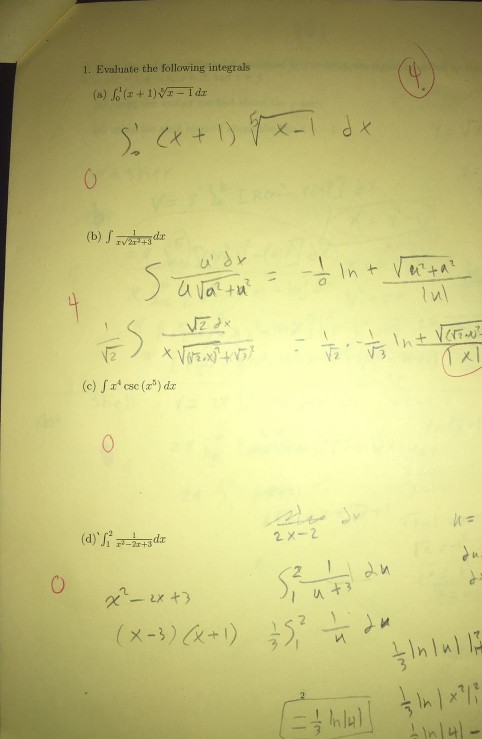 1. Evaluate the following integrals
4.
(a) ∫₀¹ (x + 1)⁵√(x − 1) dx
∫₀¹ (x + 1) ⁵√(x−1) dx
0
(b) ∫ 1/(x√(2x²+3)) dx
∫ u' dx/(u√(a²+u²)) = −1/a ln + √(u²+a²)/|u|
4
1/√2 ∫ √2 dx/(x√((√2·x)²+√3²)) = 1/√2 · −1/√3 ln + √((√2·x)²/|x|
(c) ∫ x⁴ csc (x⁵) dx
0
(d) ∫₁² 1/(x²−2x+3) dx
dx
2x−2
u =
du
∫₁² 1/(u+3) du
0
x² − 2x + 3
(x−3)(x+1) 1/3 ∫₁² 1/u du
1/3 ln|u|
1/3 ln|x²|
2
= 1/3 ln|4|
1/3 ln|4| −